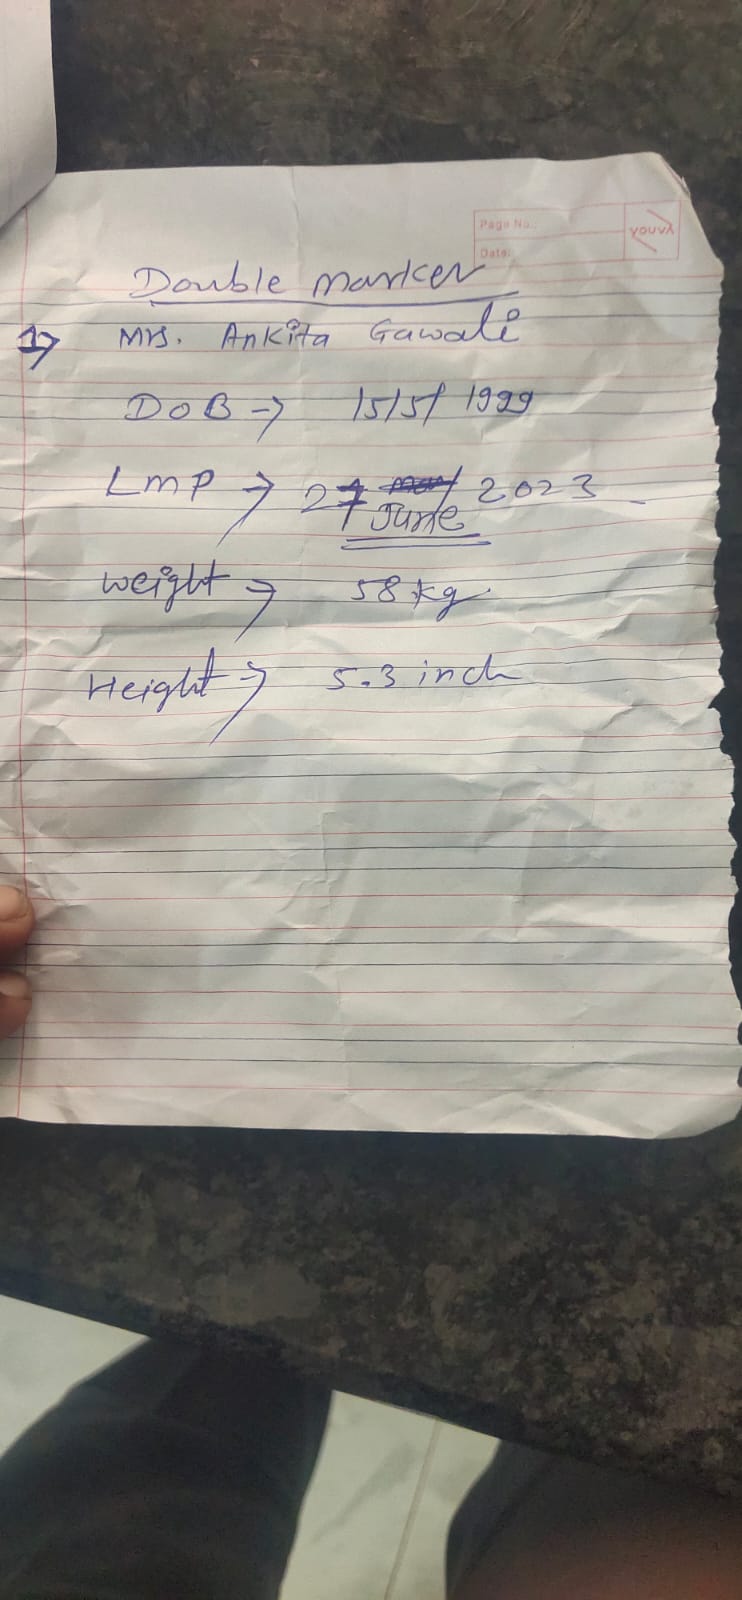 Page No.:
Date:
youva
Double marker
1) Mrs. Ankita Gawali
DOB → 15/5/1999
LMP → 27 may/2023
June
weight → 58 kg
Height → 5.3 inch